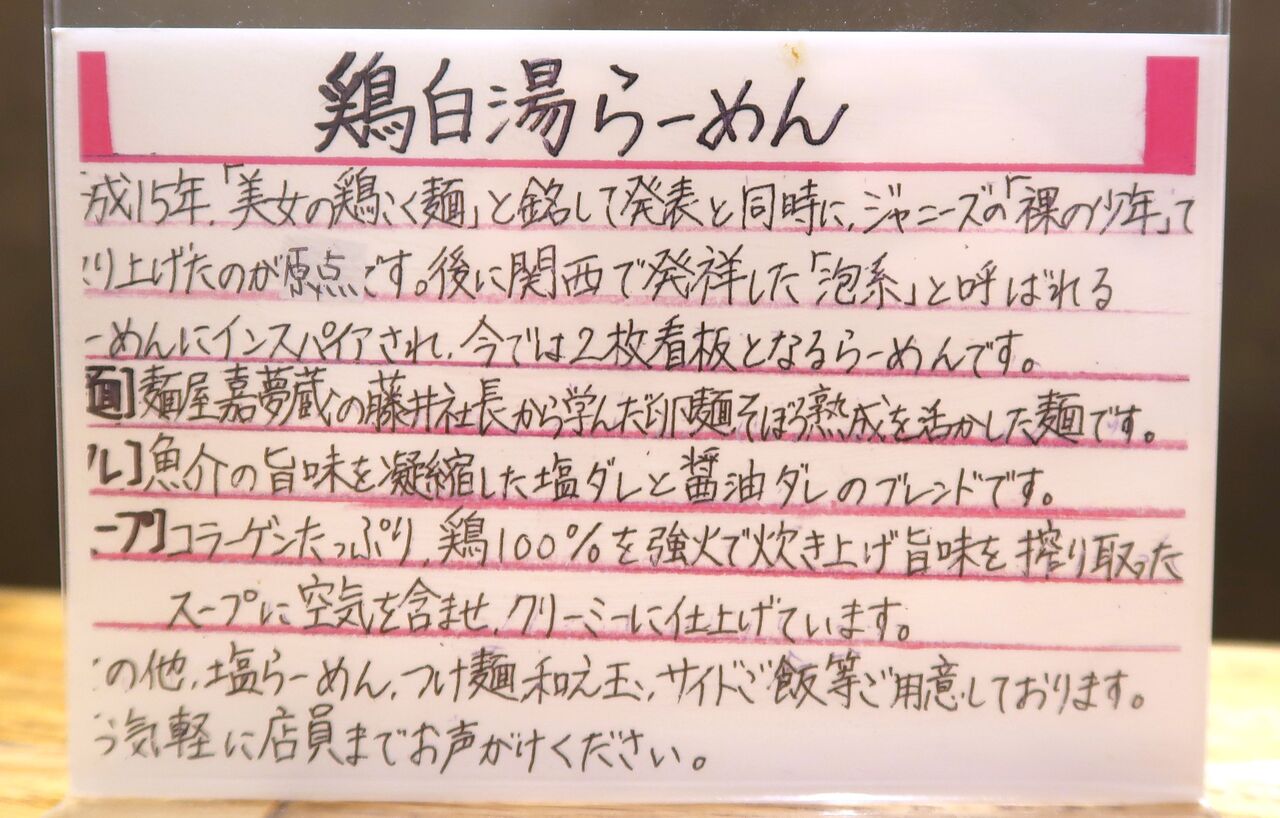 鶏白湯らーめん
成15年、「美女の鶏こく麺」と銘して発表と同時に、ジャニーズの「裸の少年」て
り上げたのが原点です。後に関西で発祥した「泡系」と呼ばれる
ーめんにインスパイアされ、今では2枚看板となるらーめんです。
麺】麺屋嘉夢蔵の藤井社長から学んだ卵麺そぼろ熟成を活かした麺です。
レ】魚介の旨味を凝縮した塩ダレと醤油ダレのブレンドです。
ープ】コラーゲンたっぷり、鶏100%を強火で炊き上げ旨味を搾り取った
スープに空気を含ませ、クリーミーに仕上げています。
の他、塩らーめん、つけ麺、和え玉、サイドご飯等ご用意しております。
気軽に店員までお声がけください。